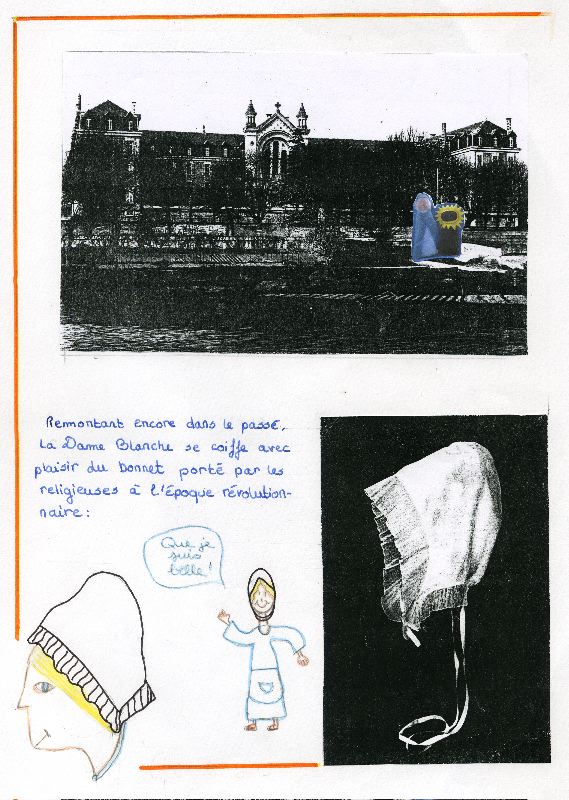 Remontant encore dans le passé,
la Dame Blanche se coiffe avec
plaisir du bonnet porté par les
religieuses à l'époque révolution-
naire :
Que je
suis
belle !